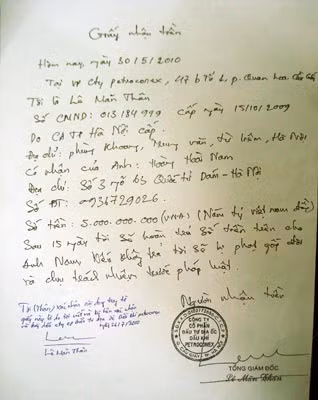 Giấy nhận tiền
Hôm nay, ngày 30/5/2010
Tại VP Cty petroconex, 47 b Tổ 2, p. Quan hoa, Cầu Giấy
Tôi là Lê Mãn Thân
Số CMND: 013 184 999 cấp ngày 15/10/2009
Do CA TP Hà Nội cấp.
Địa chỉ: phùng Khoang, Trung văn, từ liêm, Hà Nội
Có nhận của Anh: Hoàng Hoài Nam
Địa chỉ: Số 3 ngõ 63 Quốc tử Giám - Hà Nội
Số ĐT: 0936729026.
Số tiền: 5.000.000.000 (VNĐ) (Năm tỷ việt nam đồng)
Sau 15 ngày tôi sẽ hoàn trả số tiền trên cho
Anh Nam, Nếu không trả tôi sẽ phạt gấp đôi
và chịu trách nhiệm trước pháp luật.
Người nhận tiền
Tôi (Thân) xác nhận
giấy này là do tôi viết và ký
Lê Mãn Thân
CÔNG TY
CỔ PHẦN
ĐẦU TƯ ĐỊA ỐC
DẦU KHÍ
PETROCONEX
TỔNG GIÁM ĐỐC
Lê Mãn Thân